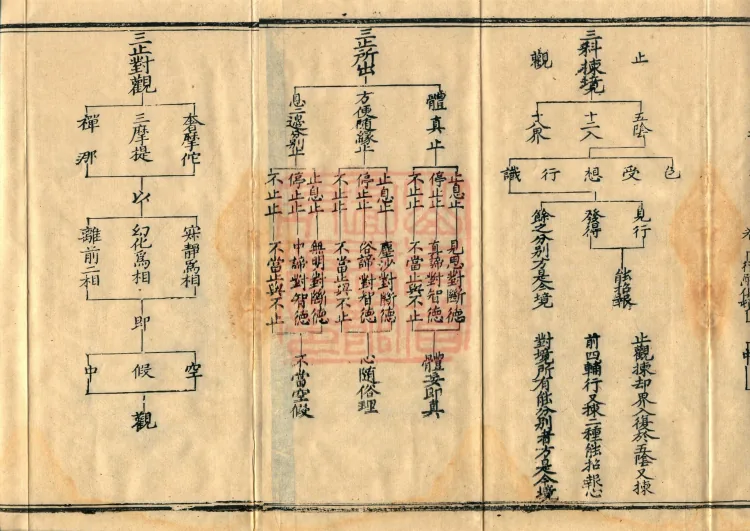 止
觀
三科揀境
五陰
十二入
十八界
色
受
想
行
識
見行
發得
餘之分別方是今境
能招報
止觀揀却界入復於五陰又揀
前四輔行又揀二種能招報心
對境所有能分別者方是今境
三止所出
體真止
方便隨緣止
息二邊分別止
止息止
見思對斷德
停止止
真諦對智德
不止止
不當止與不止
體妄即真
止息止
塵沙對斷德
停止止
俗諦對智德
不止止
不當止與不止
心隨俗理
止息止
無明對斷德
停止止
中諦對智德
不止止
不當止與不止
不當空假
三止對觀
奢摩佗
三摩提
禪那
以
寂靜為相
幻化為相
離前二相
即
空
假
中
觀